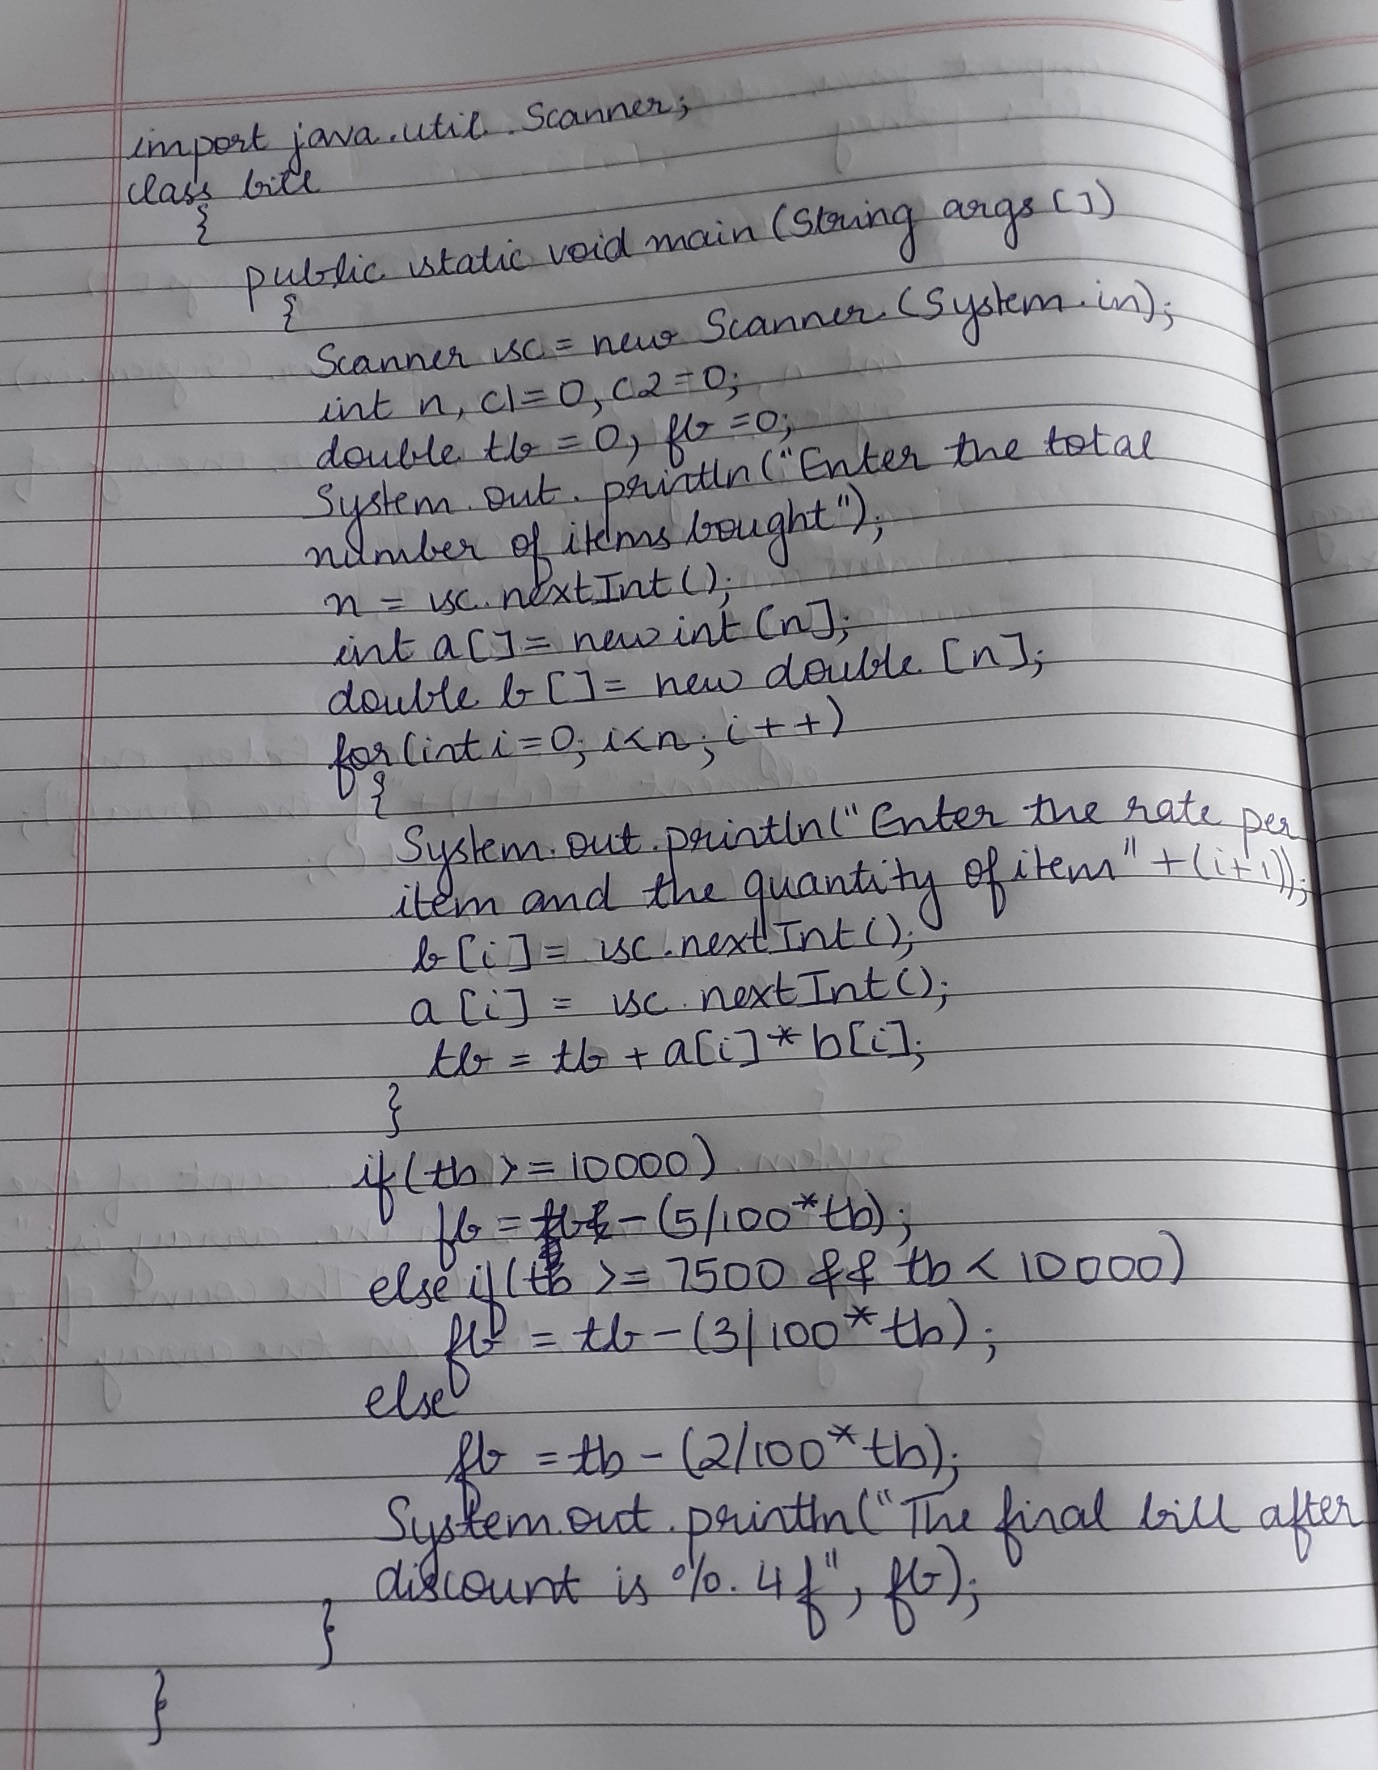 import java.util.Scanner;
class bill
{
public static void main (String args [])
{
Scanner sc = new Scanner (System.in);
int n, c1=0, c2=0;
double tb = 0, fb = 0;
System.out.println("Enter the total
number of items bought");
n = sc.nextInt();
int a[] = new int [n];
double b[] = new double [n];
for (int i = 0; i<n; i++)
{
System.out.println("Enter the rate per
item and the quantity of item" + (i+1));
b[i] = sc.nextInt();
a[i] = sc.nextInt();
tb = tb + a[i]*b[i];
}
if (tb >= 10000)
fb = - (5/100*tb);
else if (tb >= 7500 && tb < 10000)
fb = tb - (3/100*tb);
else
fb = tb - (2/100*tb);
System.out.println("The final bill after
discount is %.4f", fb);
}
}